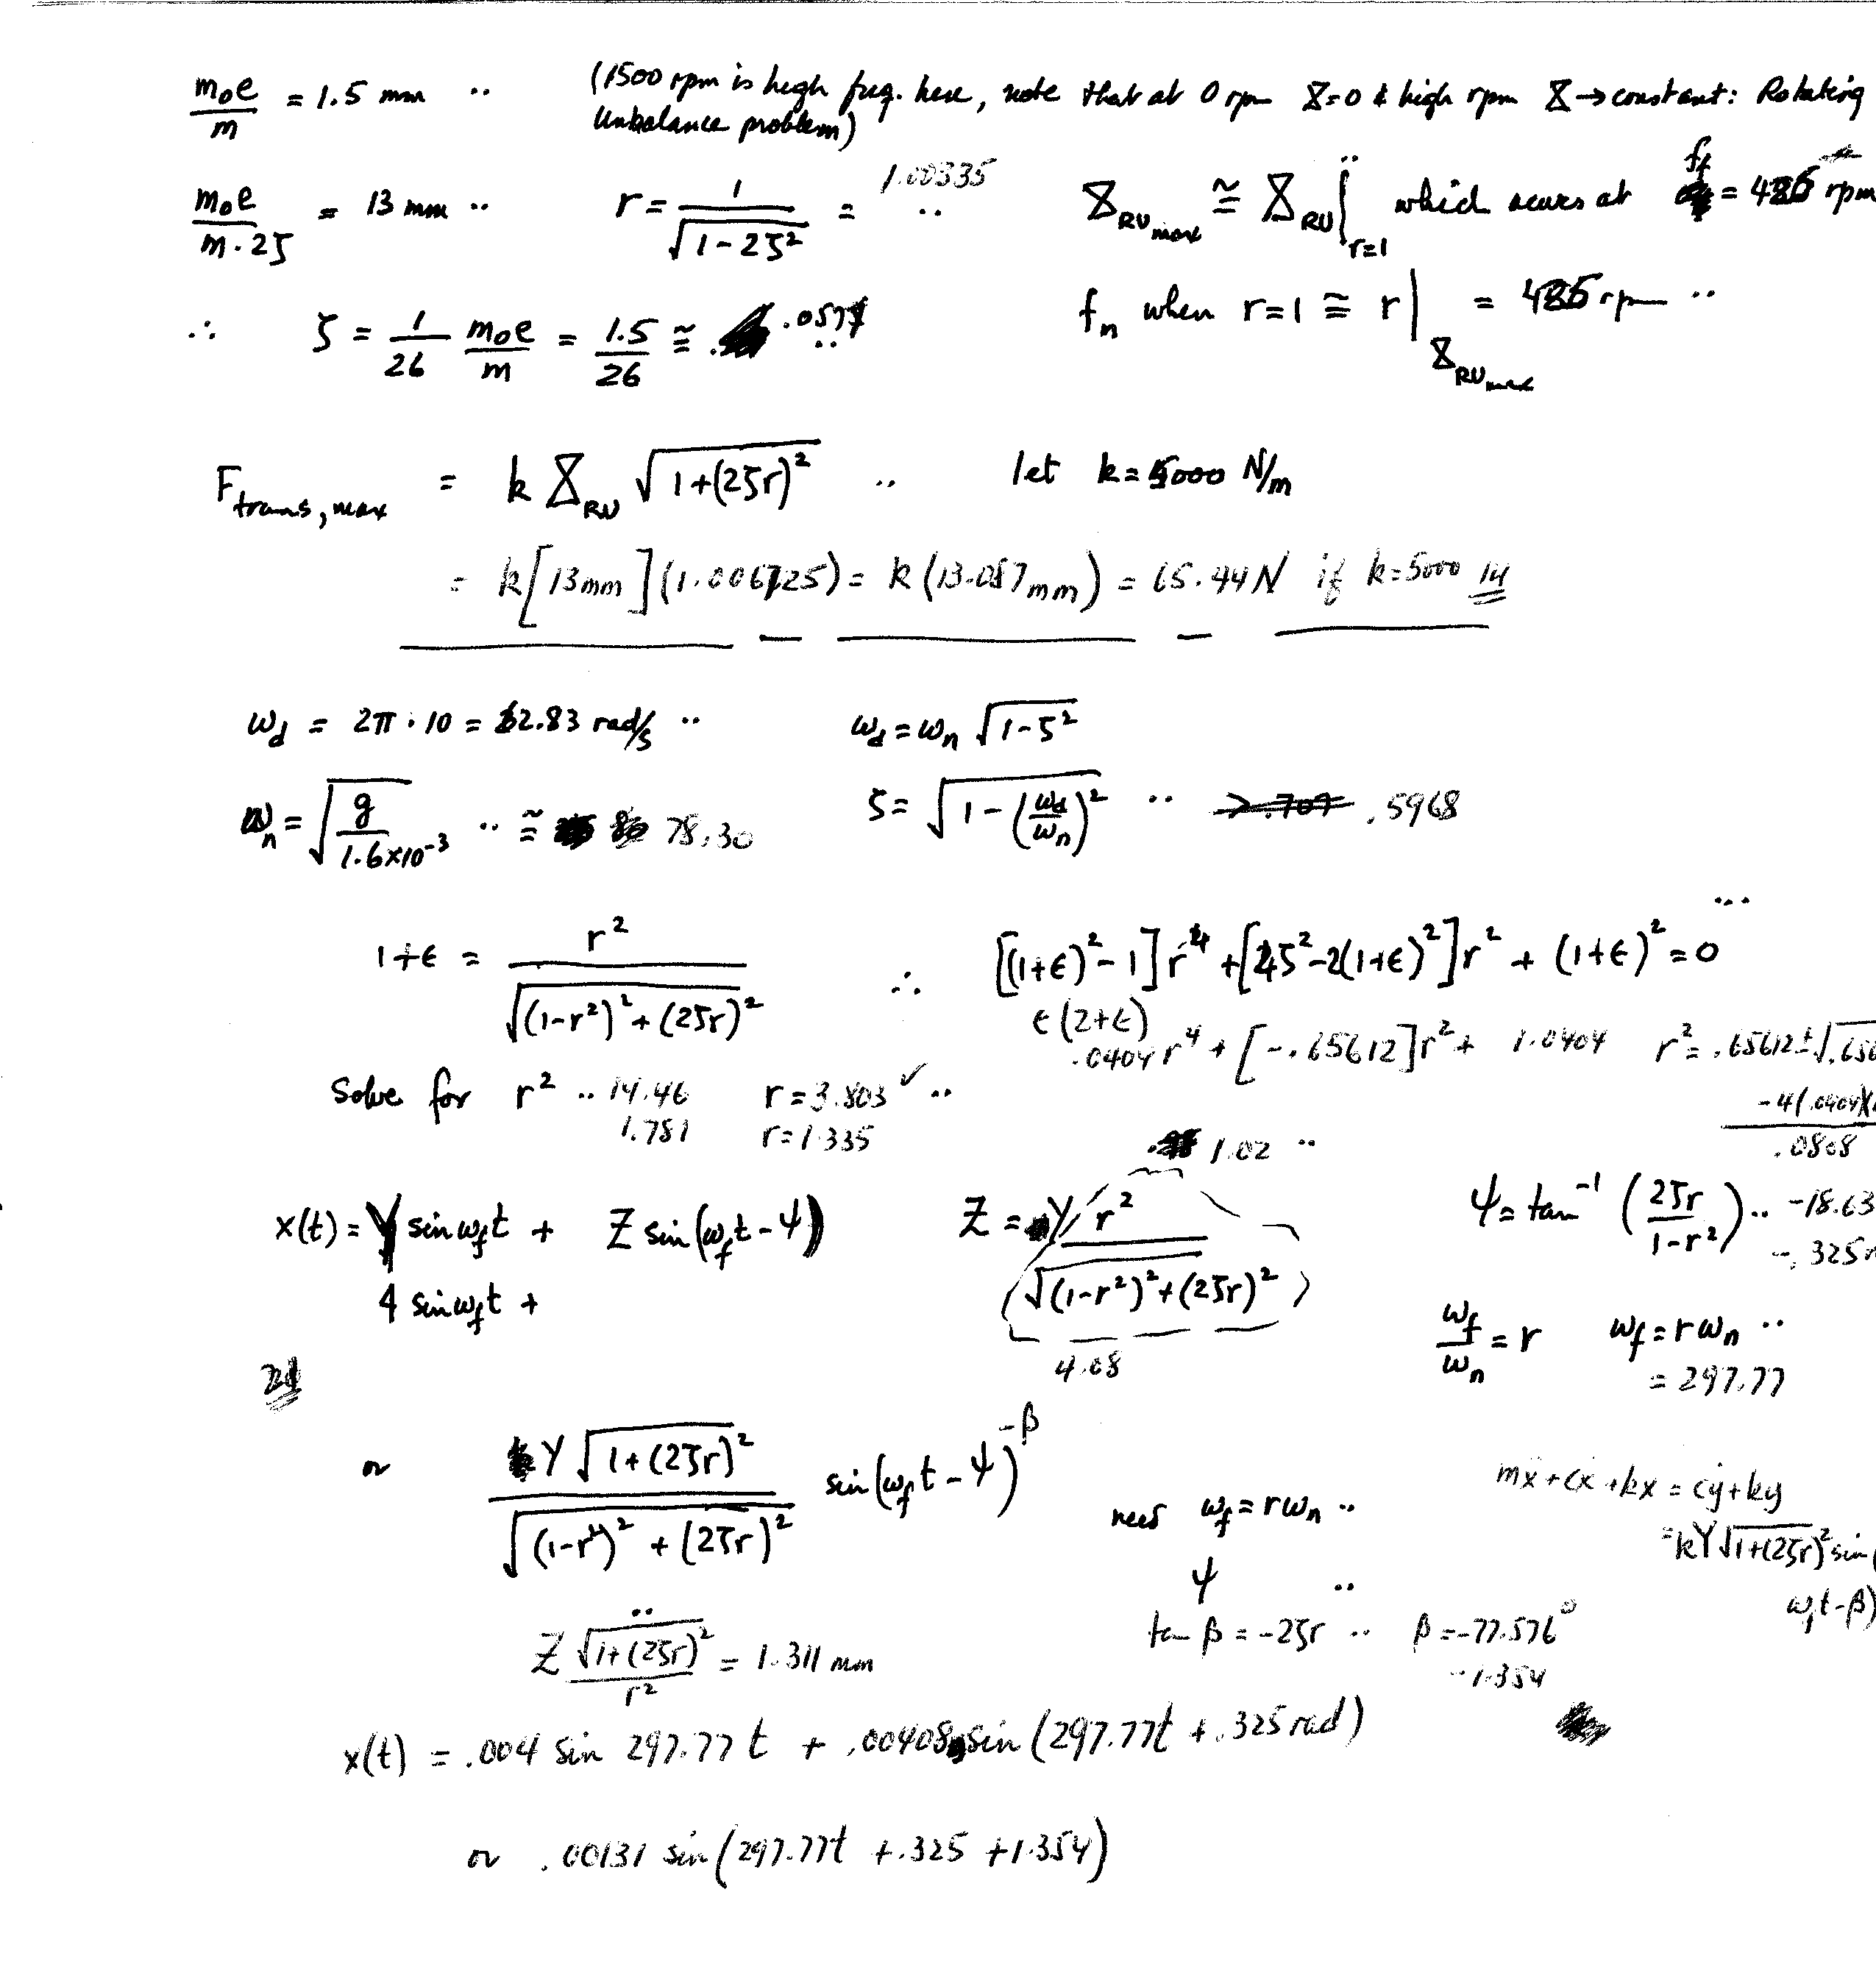 m₀e/m = 1.5 mm ·· (1500 rpm is high freq. here, note that at 0 rpm X=0 & high rpm X → constant: Rotating
Unbalance problem)
m₀e/(m·2ζ) = 13 mm ·· r = 1/√(1-2ζ²) = 1.00335 ·· X_RU max ≅ X_RU|r=1 which occurs at f_f = 485 rpm
∴ ζ = 1/26 m₀e/m = 1.5/26 ≅ .0577 ·· f_n when r=1 ≅ r|X_RU max = 485 rpm ··
F_trans,max = k X_RU √(1+(2ζr)²) ·· let k=5000 N/m
= k[13mm](1.006725) = k(13.087mm) = 65.44N if k=5000 1//
ω_d = 2π·10 = 62.83 rad/s ·· ω_d = ω_n √(1-ζ²)
ω_n = √(g/(1.6×10⁻³)) ·· ≅ 78.30 ζ = √(1-(ω_d/ω_n)²) ·· >.707 .5968
1+ϵ = r²/√((1-r²)²+(2ζr)²) ∴ [(1+ϵ)²-1]r⁴+[4ζ²-2(1+ϵ)²]r² + (1+ϵ)²=0 ···
ϵ(2+ϵ)
.0404r⁴ + [-.65612]r² + 1.0404 r² = .65612±√.656
-4(.0404)(
.0808
Solve for r² ·· 14.46 r=3.803 ✓ ··
1.781 r=1.335
x(t) = Y sin ω_f t + Z sin(ω_f t - ψ) Z = Y r²/√((1-r²)²+(2ζr)²) 1.02 ·· ψ = tan⁻¹(2ζr/(1-r²)) ·· -18.63
-.325r
4 sin ω_f t + 4.08 ω_f/ω_n = r ω_f = rω_n ··
= 297.77
2//
or Y√(1+(2ζr)²)/√((1-r²)²+(2ζr)²) sin(ω_f t - ψ) -β need ω_f = rω_n ·· mẍ+cẋ+kx = cẏ+ky
=kY√(1+(2ζr)²) sin(
ω_f t-β)
ψ ··
tan β = -2ζr ·· β = -77.576°
-1.354
Z √(1+(2ζr)²)/r² = 1.311 mm
x(t) = .004 sin 297.77 t + .00408 sin(297.77t + .325 rad)
or .00131 sin(297.77t + .325 + 1.354)